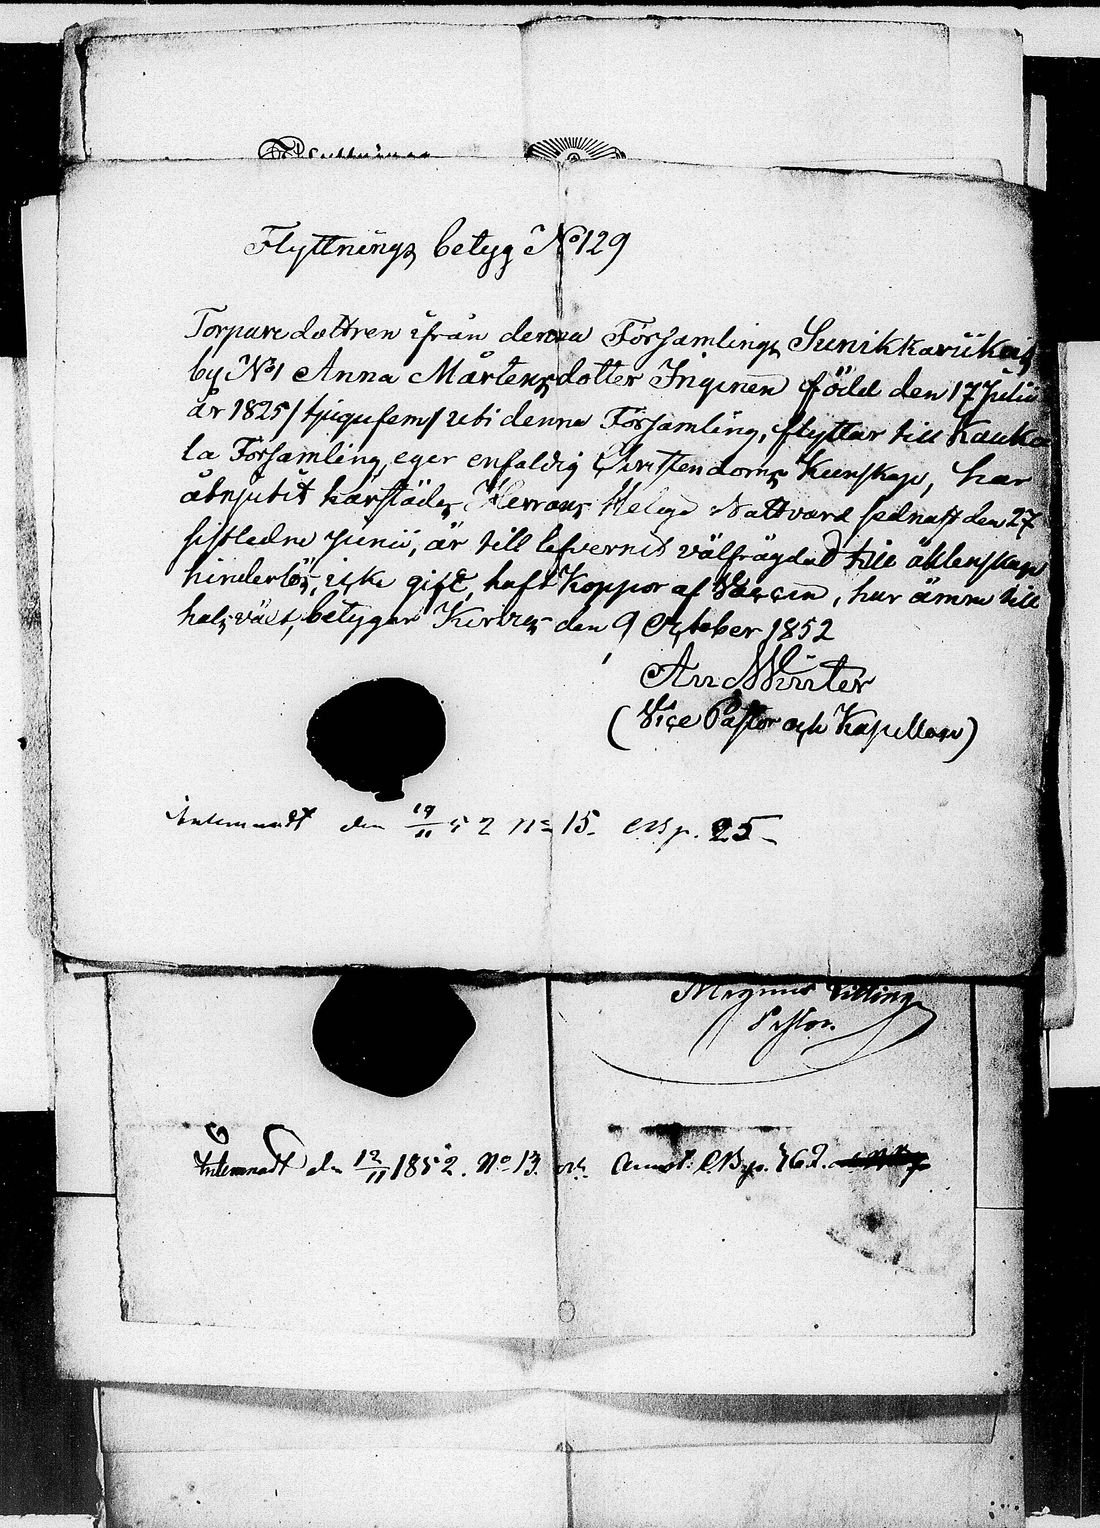 Flyttnings betyg No 129
Torpare dottren ifrån denna Församlings Sunikkariikas
by No 1 Anna Mårtensdotter Inginen född den 17 Julii
år 1825 /tjugufem/ uti denna Församling, flyttar till Kauko
la Församling, eger enfaldig Christendoms Kunskap, har
åtnjutit härstädes Herrans Helga Nattvard sednast den 27
sistledne Junii, är till lefvernet välfrägdad till äktenskap
hinderlös, icke gift, haft Koppor af Vaccin, har ämne till
halsväst, betygar Kirvus den 9 October 1852
And Winter
(Vice Pastor och Kapellan)
Inlemnadt den 19/11 52 No 15. p. 25
Magnus
Pastor.
Inlemnadt den 12/11 1852. No 13. och p. 762.